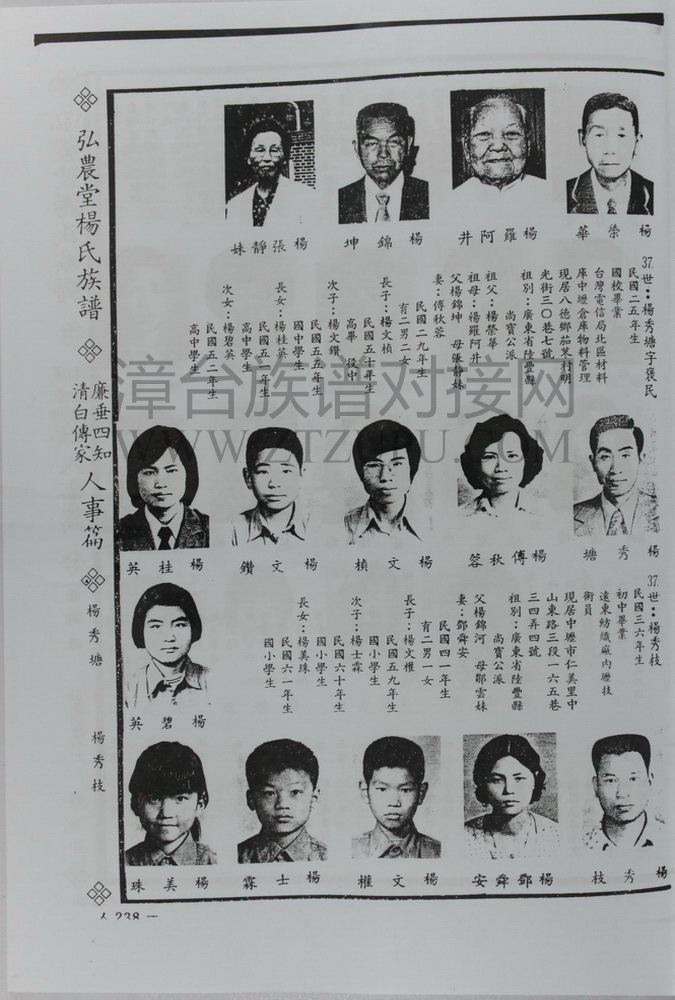 楊榮華
楊羅阿井
楊錦坤
楊張靜妹
37.世：楊秀塘字褒民
民國二五年生
國校畢業
台灣電信局北區材料
庫中壢倉庫物料管理
現居八德鄉茄苳村明
光街三〇巷七號
祖別：廣東省陸豐縣
尚寶公派
祖父：楊榮華
祖母：楊羅阿井
父楊錦坤 母張靜妹
妻：傅秋蓉
民國二九年生
育二男二女
長子：楊文楨
民國五十年生
高畢 役中
次子：楊文鑽
民國五五年生
國中學生
長女：楊桂英
民國五一年生
高中學生
次女：楊碧英
民國五二年生
高中學生
楊秀塘
楊傅秋蓉
楊文楨
楊文鑽
楊桂英
37.世：楊秀枝
民國三六年生
初中畢業
遠東紡織廠內壢技
術員
現居中壢市仁美里中
山東路三段一六五巷
三四弄四號
祖別：廣東省陸豐縣
尚寶公派
父楊錦河 母鄒雲妹
妻：鄧舜安
民國四一年生
育二男一女
長子：楊文權
民國五九年生
國小學生
次子：楊士霖
民國六十年生
國小學生
長女：楊美珠
民國六一年生
國小學生
楊碧英
楊秀枝
楊鄧舜安
楊文權
楊士霖
楊美珠
弘農堂楊氏族譜
廉垂四知
清白傳家
人事篇
楊秀塘
楊秀枝
漳台族谱对接网